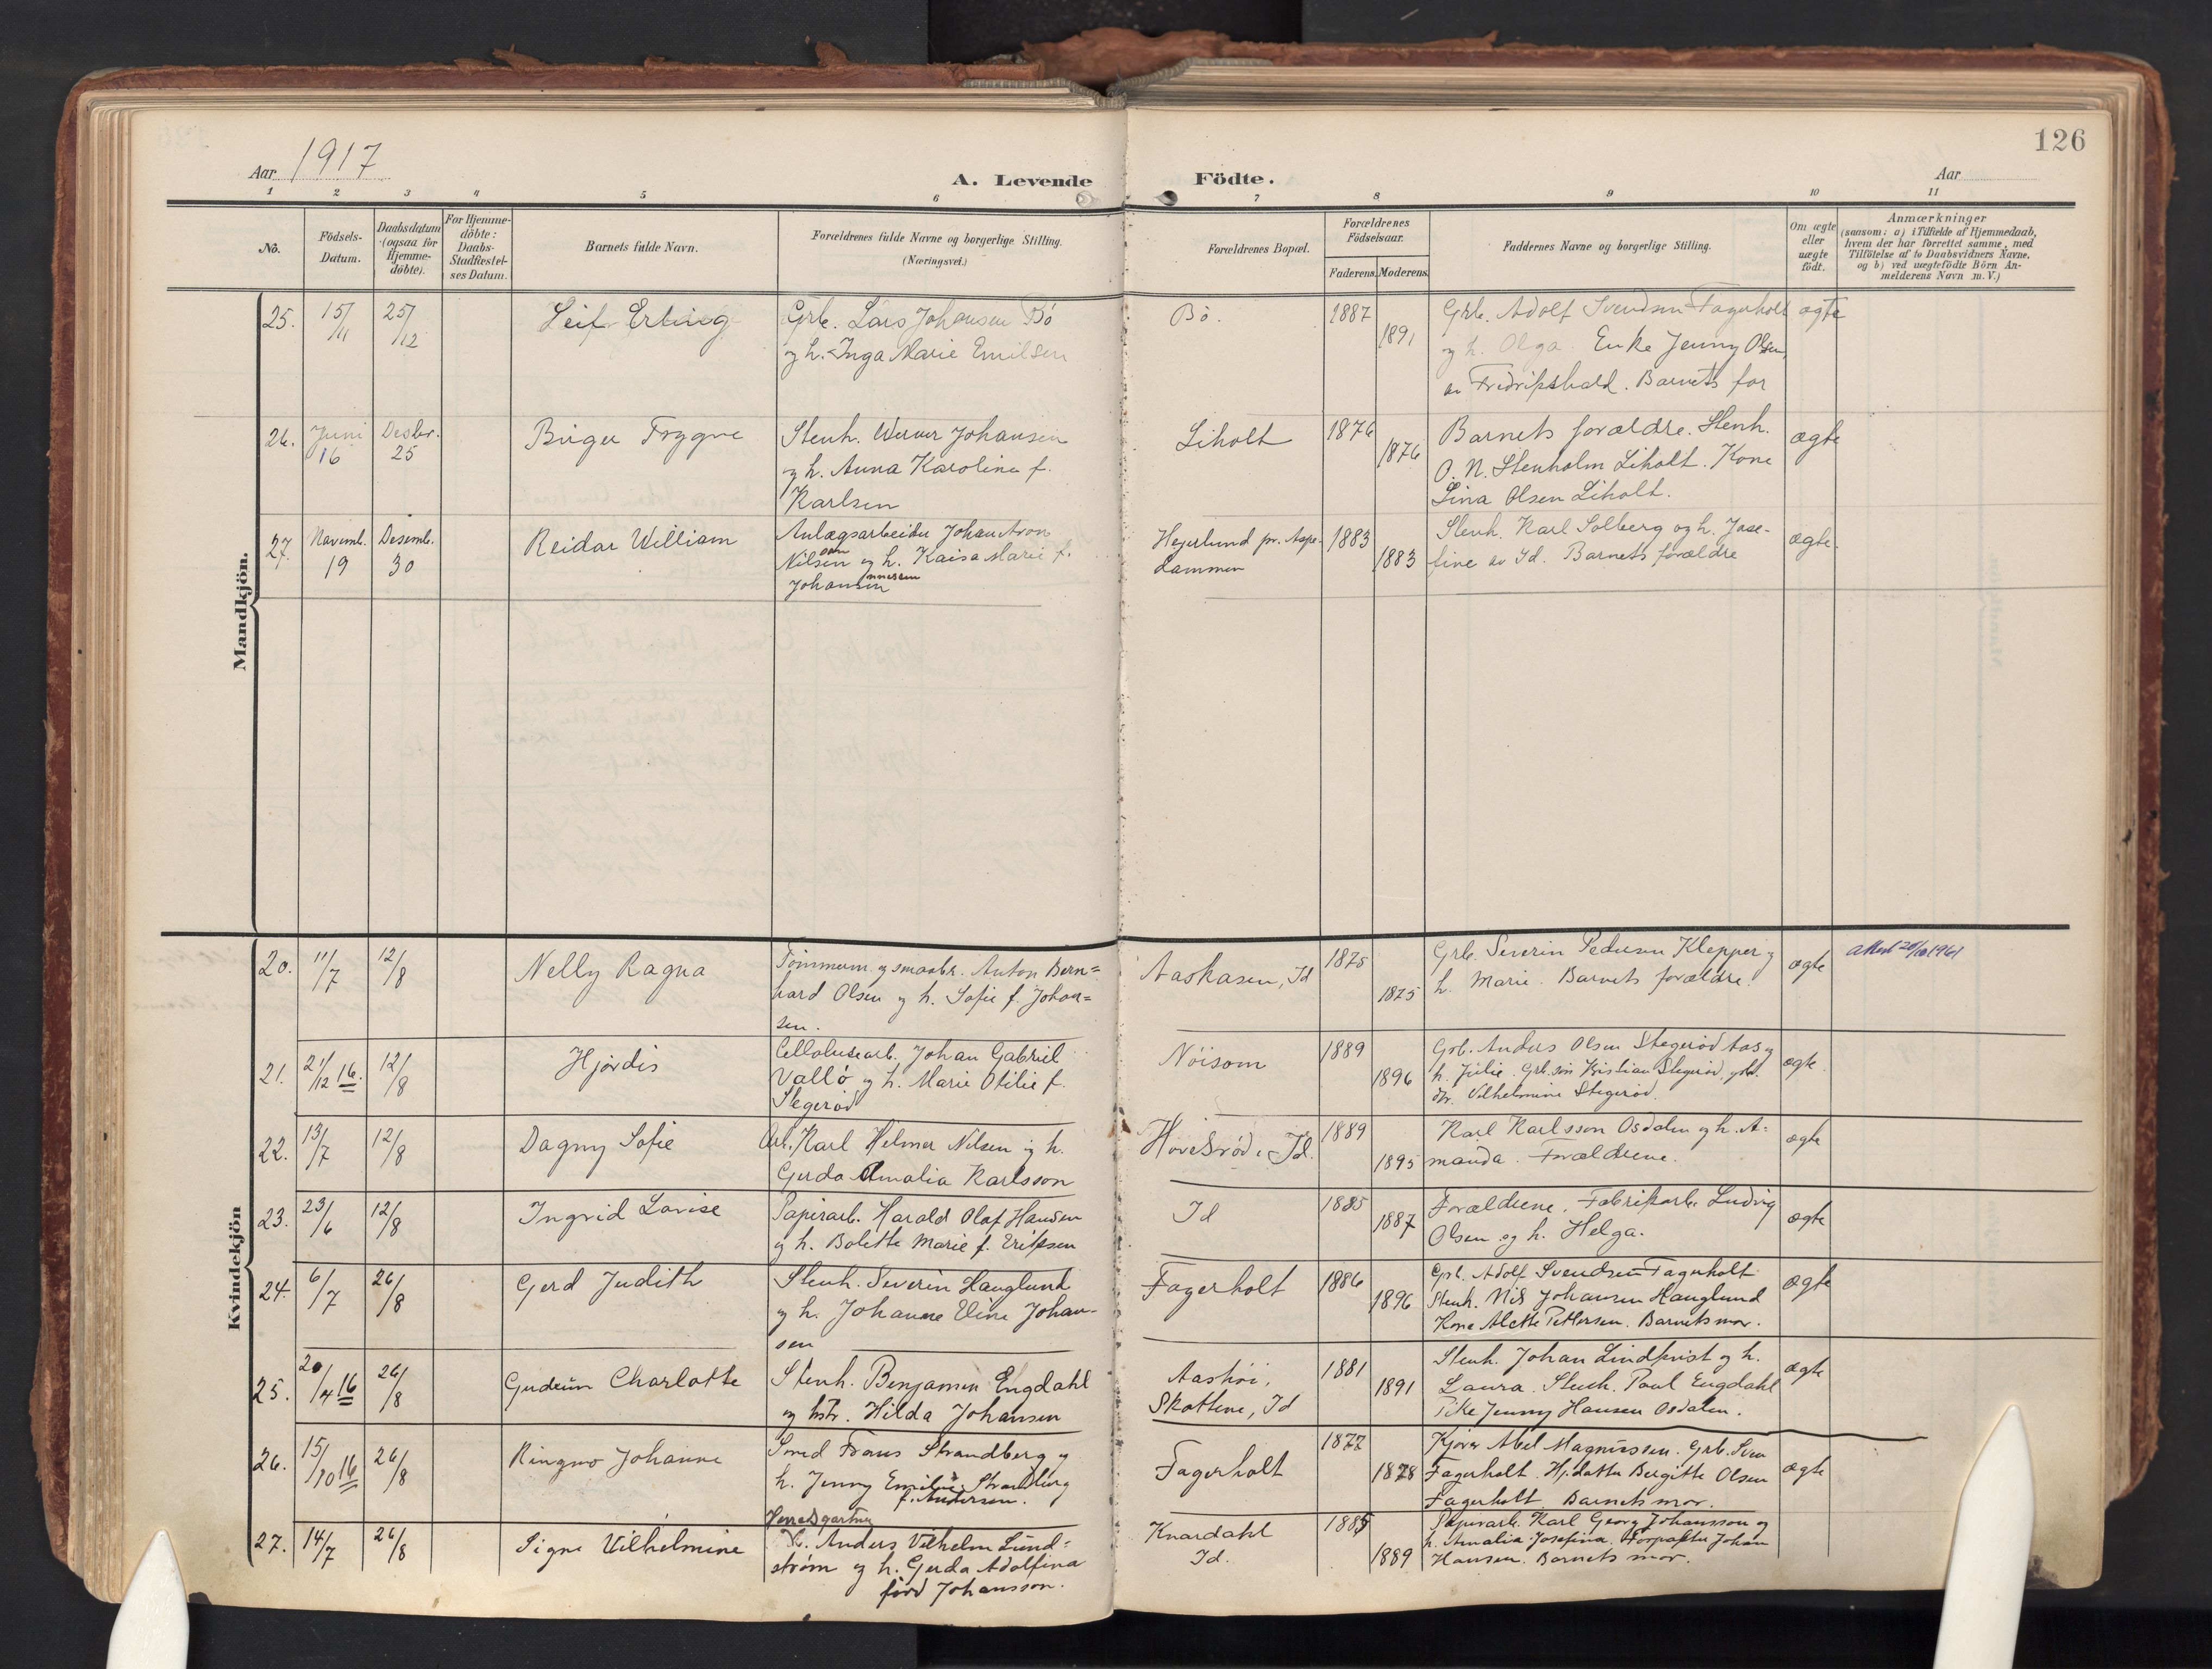 126
Aar 1917
A. Levende Födte.
Aar
1 2 3 4 5 6 7 8 9 10 11
No.
Födsels-
Datum.
Daabsdatum
(ogsaa for
Hjemme-
döbte).
For Hjemme-
döbte:
Daabs-
Stadfæstel-
ses Datum.
Barnets fulde Navn.
Forældrenes fulde Navne og borgerlige Stilling.
(Næringsvei.)
Forældrenes Bopæl.
Forældrenes
Födselsaar.
Faderens. Moderens.
Faddernes Navne og borgerlige Stilling.
Om ægte
eller
uægte
födt.
Anmærkninger
(saasom: a) i Tilfælde af Hjemmedaab,
hvem der har forrettet samme, med
Tilföielse af to Daabsvidners Navne,
og b) ved uægtefödte Börn An-
melderens Navn m. V.)
Mandkjön.
25. 15/11 25/12 Leif Erling
Grb. Lars Johansen Bö
og h. Inga Marie Emilsen
Bö. 1887 1891
Grb. Adolf Svendsen Fagerholt
og h. Olga. Enke Jenny Olsen,
av Fredrikshald. Barnets far
ægte
26. Juni 16 Desbr. 25 Birger Trygve
Stenh. Werner Johansen
og h. Anna Karolina f.
Karlsen
Liholt 1876 1876
Barnets forældre. Stenh.
O. N. Stenholm Liholt. Kone
Lina Olsen Liholt.
ægte
27. Novemb. 19 Desemb. 30 Reidar William
Anlægsarbeider Johan Aron
Nilsson og h. Kaisa Marie f.
Johannessen
Hejerlund pr. Aspe-
dammen
1883 1883
Stenh. Karl Solberg og h. Jose-
fine av Id. Barnets forældre
ægte.
Kvindekjön
20. 11/7 12/8 Nelly Ragna
Tömmerm. og smaabr. Anton Bern=
hard Olsen og h. Sofie f. Johan=
sen.
Aaskasen, Id 1875 1875
Grb. Severin Pedersen Klepper og
h. Marie. Barnets forældre.
ægte
Attest 20/10 1961
21. 21/12 16. 12/8 Hjördis
Cellulosearb. Johan Gabriel
Vallö og h. Marie Otilie f.
Stegeröd
Nöisom 1889 1896
Grb. Anders Olsen Stegeröd Aas og
h. Julie. Grb. sön Kristian Stegeröd, grb.
dtr. Vilhelmine Stegeröd.
ægte
22. 13/7 12/8 Dagny Sofie
Arb. Karl Helmer Nilsen og h.
Gerda Amalia Karlsson
Hovelsröd i Id. 1889 1895
Karl Karlsson Osdalen og h. A=
manda. Forældrene.
ægte
23. 23/6 12/8 Ingrid Lovise
Papirarb. Harald Olaf Hansen
og h. Bolette Marie f. Eriksen
Id 1885 1887
Forældrene. Fabrikarb. Ludvig
Olsen og h. Helga.
ægte
24. 6/7 26/8 Gerd Judith
Stenh. Severin Hauglund
og h. Johanne Eline Johan-
sen
Fagerholt 1886 1896
Grb. Adolf Svendsen Fagerholt
Stenh. Nils Johansen Hauglund
Kone Alette Pettersen. Barnets mor.
ægte
25. 20/4 16 26/8 Gudrun Charlotte
Stenh. Benjamin Engdahl
og hstr. Hilda Johansen
Aashöi,
Skottene, Id
1881 1891
Stenh. Johan Lindkvist og h.
Laura. Stenh. Paul Engdahl
Pike Jenny Hansen Osdalen.
ægte
26. 15/10 16 26/8 Ringmo Johanne
Smed Frans Strandberg og
h. Jenny Emilie Strandberg
f. Andersen.
Fagerholt 1877 1878
Kjører Abel Magnussen. Grb. Sven
Fagerholt. Hj. datter Bergitte Olsen
Fagerholt. Barnets mor.
ægte
27. 14/7 26/8 Signe Vilhelmine
Herredsgartner
Anders Vilhelm Lund-
ström og h. Gerda Adolfina
född Johansson.
Knardahl
Id.
1885 1889
Papirarb. Karl Georg Johansson og
h. Amalia Josefina. Forpakter Johan
Hansen. Barnets mor.